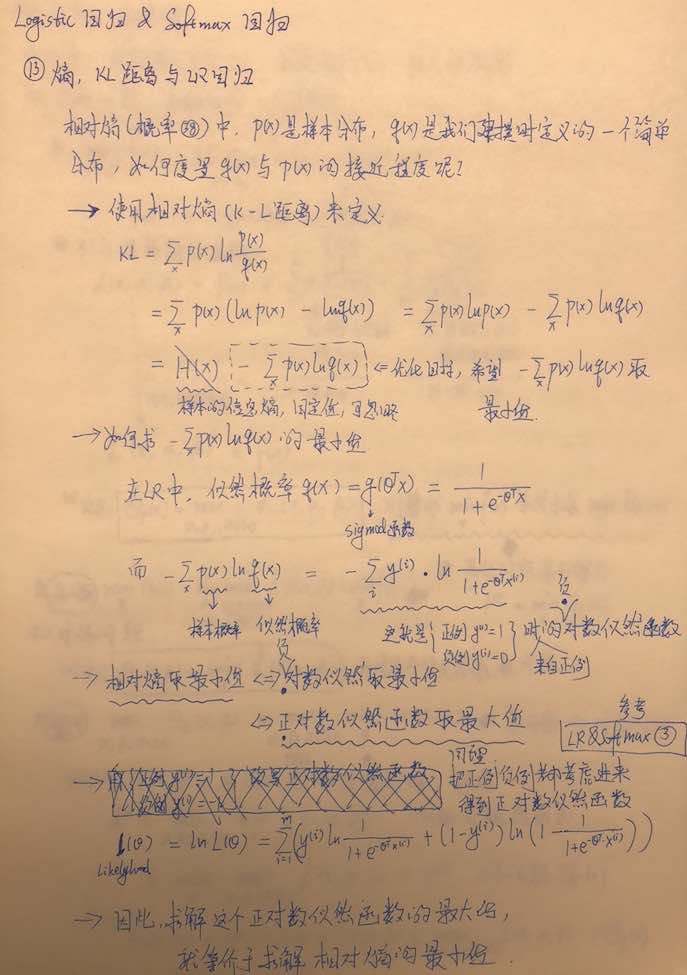 Logistic 回归 & Softmax 回归
⑬ 熵, KL距离与LR回归
相对熵(概率㉘)中, p(x)是样本分布, q(x)是我们建模时定义的一个简单
分布, 如何度量 q(x) 与 p(x) 的接近程度呢?
→ 使用相对熵(K-L距离)来定义.
KL = ∑_x p(x) ln p(x)/q(x)
= ∑_x p(x) (ln p(x) - ln q(x)) = ∑_x p(x) ln p(x) - ∑_x p(x) ln q(x)
= H(x) - ∑_x p(x) ln q(x) ⇐ 优化目标, 希望 -∑_x p(x) ln q(x) 取
样本的信息熵, 固定值, 可忽略 最小值.
→ 如何求 -∑_x p(x) ln q(x) 的最小值.
在LR中, 似然概率 q(x) = g(θᵀx) = 1/(1+e^(-θᵀx))
sigmod函数
而 -∑_x p(x) ln q(x) = -∑_i y⁽ⁱ⁾ · ln 1/(1+e^(-θᵀx⁽ⁱ⁾))
样本概率 似然概率 这就是{正例 y⁽ⁱ⁾=1 负例 y⁽ⁱ⁾=0} 时的负对数似然函数
来自正例
→ 相对熵取最小值 ⇔ 负对数似然取最小值
⇔ 正对数似然函数取最大值
参考
LR&Softmax ③
回望
把正例负例都考虑进来
得到正对数似然函数
l(θ) = ln L(θ) = ∑_{i=1}^m (y⁽ⁱ⁾ ln 1/(1+e^(-θᵀx⁽ⁱ⁾)) + (1-y⁽ⁱ⁾) ln (1 - 1/(1+e^(-θᵀx⁽ⁱ⁾))))
Likelyhood
→ 因此, 求解这个正对数似然函数的最大值,
就等价于求解相对熵的最小值.